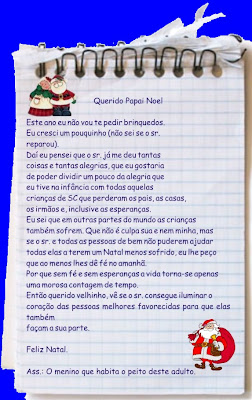 Querido Papai Noel
Este ano eu não vou te pedir brinquedos.
Eu cresci um pouquinho (não sei se o sr.
reparou).
Daí eu pensei que o sr. já me deu tantas
coisas e tantas alegrias, que eu gostaria
de poder dividir um pouco da alegria que
eu tive na infância com todas aquelas
crianças de SC que perderam os pais, as casas,
os irmãos e, inclusive as esperanças.
Eu sei que em outras partes do mundo as crianças
também sofrem. Que não é culpa sua e nem minha, mas
se o sr. e todas as pessoas de bem não puderem ajudar
todas elas a terem um Natal menos sofrido, eu lhe peço
que ao menos lhes dê fé no amanhã.
Por que sem fé e sem esperanças a vida torna-se apenas
uma morosa contagem de tempo.
Então querido velhinho, vê se o sr. consegue iluminar o
coração das pessoas melhores favorecidas para que elas
também
façam a sua parte.
Feliz Natal.
Ass.: O menino que habita o peito deste adulto.